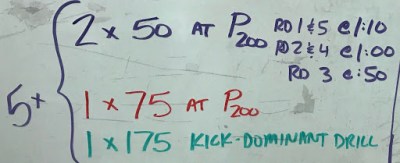 5x
2 x 50 AT P200 RD 1 & 5 @ 1:10
RD 2 & 4 @ 1:00
RD 3 @ :50
1 x 75 AT P200
1 x 175 KICK-DOMINANT DRILL